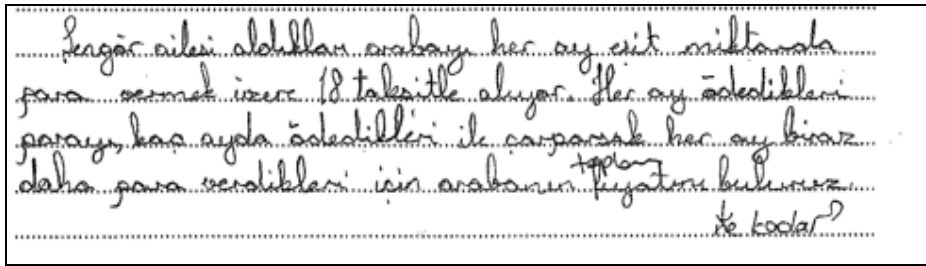 Şengör ailesi aldıkları arabayı her ay eşit miktarda
para vermek üzere 18 taksitle alıyor. Her ay ödedikleri
parayı, kaç ayda ödedikleri ile çarparsak her ay biraz
daha para verdikleri için arabanın toplam fiyatını buluruz.
ne kadar?